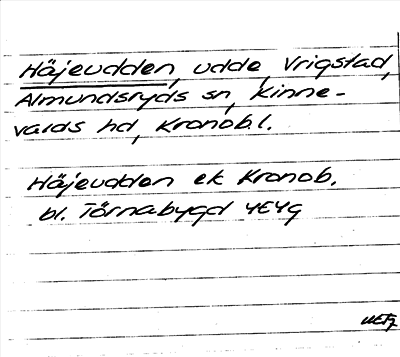 Häjeudden, udde, Vrigstad,
Almundsryds sn, Kinne-
valds hd, Kronob.l.
Häjeudden ek Kronob.
bl. Törnabygd 4E4g